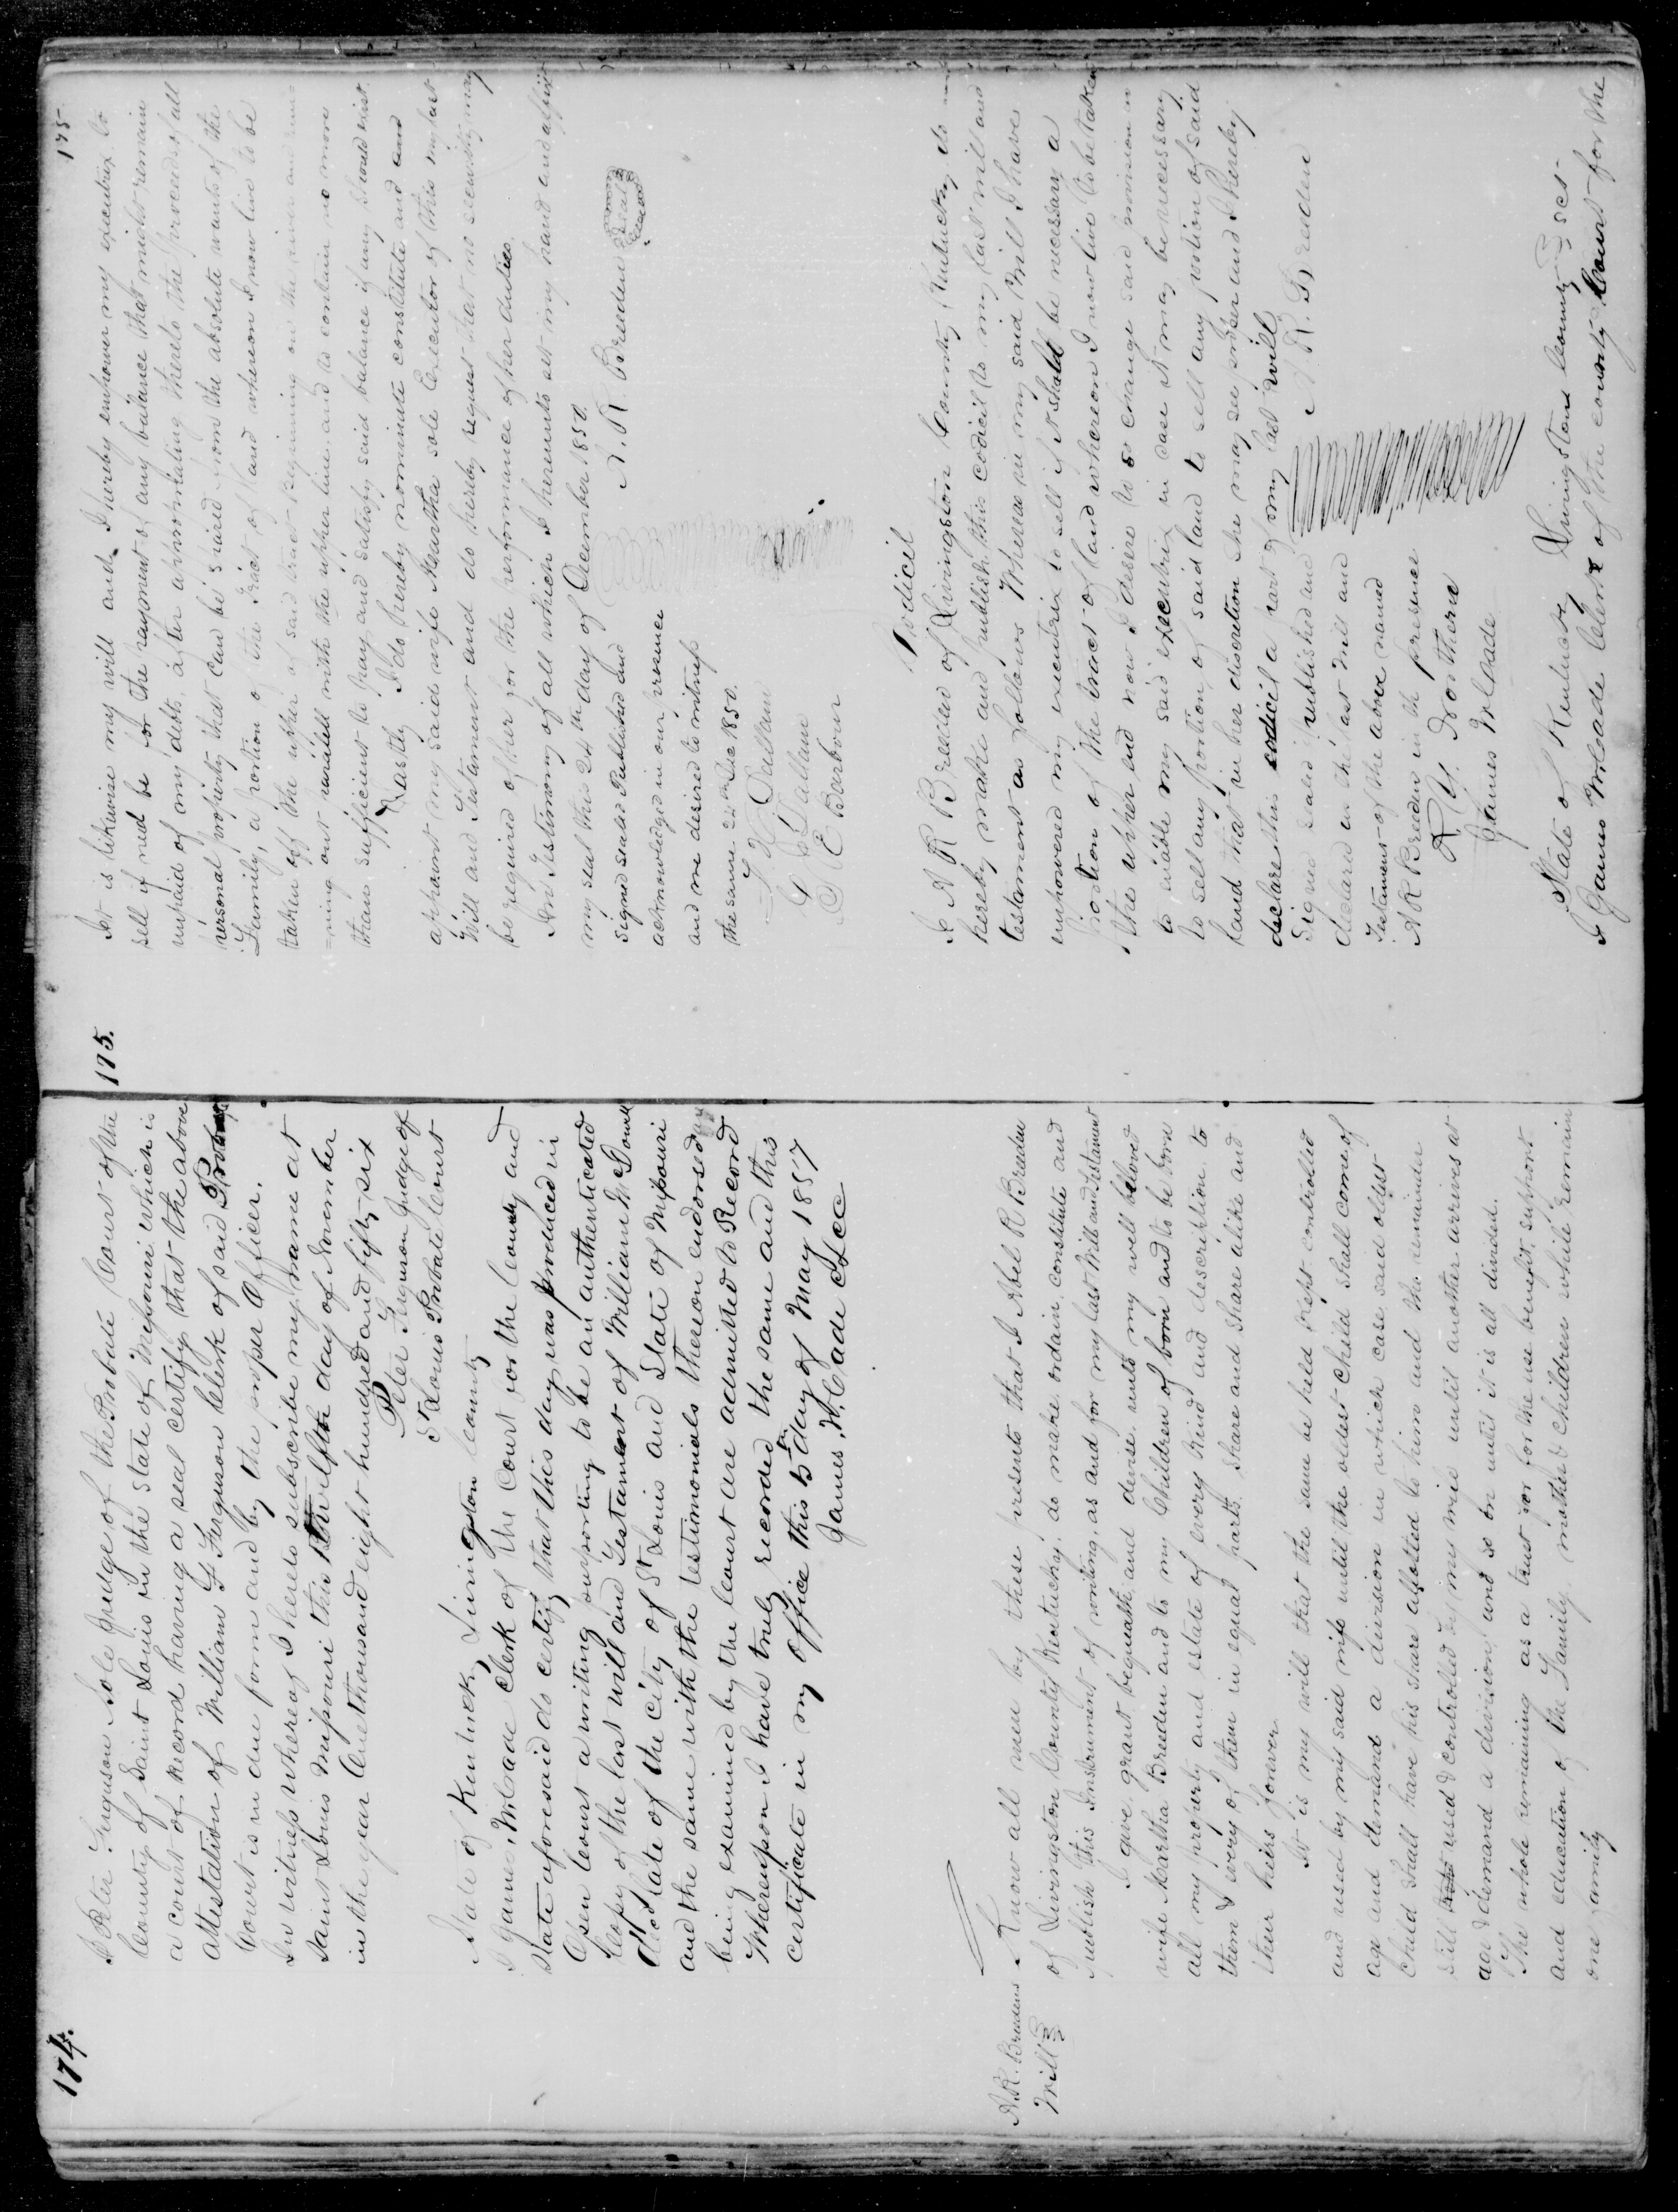 174.
I Peter Ferguson Sole Judge of the Probate Court of the
County of Saint Louis in the State of Missouri which is
a court of Record having a seal certify that the above
attestation of William F Ferguson Clerk of said Probate
Court is in due form and by the proper Officer.
In witness whereof I hereto subscribe my name at
Saint Louis Missouri this twelfth day of November
in the year One thousand eight hundred and fifty-six
Peter Ferguson Judge of
St Louis Probate Court
State of Kentucky Livingston County
I James McCade Clerk of the Court for the County and
State aforesaid do certify that this day was produced in
Open Court a writing purporting to be an authenticated
Copy of the last will and Testament of William McDowell
late of the City of St Louis and State of Missouri
and the same with the testimonials thereon endorsed
being examined by the Court are admitted to Record
Whereupon I have truly recorded the same and this
certificate in my office this 5th day of May 1857
James McCade
A. R. Breedens
Will
Know all men by these presents that I Abel R Breeden
of Livingston County Kentucky, do make, ordain, constitute and
publish this Instrument of writing, as and for my last Will and Testament
I give, grant bequeath, and devise, unto my well beloved
wife Martha Breeden and to my Children of born and to be born
all my property and estate of every kind and description, to
them & every of them in equal parts. Share and Share alike and
their heirs forever.
It is my will that the same be held kept controlled
and used by my said wife until the oldest child shall come of
age and demand a division in which case said oldest
Child shall have his share allotted to him and the remainder
still used & controlled by my wife until another arrives at
age & demand a division, and so on until it is all divided.
The whole remaining as a trust for for the use benefit, support
and education of the Family, mother & children while remain
one family
175.
175
It is likewise my will and I hereby empower my executrix to
sell if need be for the payment of any balance that might remain
unpaid of my debts, after appropriating thereto the proceeds of all
personal property that can be spared from the absolute wants of the
Family, a portion of the tract of land whereon I now live to be
taken off the upper of said tract beginning on the river and runs
=ning out parallel with the upper line and to contain no more
than sufficient to pay and satisfy said balance if any should exist.
Lastly I do hereby nominate constitute and and
appoint my said wife Martha sole Executor of this my last
Will and Testament and do hereby request that no security may
be required of her for the performance of her duties.
In Testimony of all which I hereunto set my hand and affix
my seal this 24th day of December 1850.
A. R. Breeden Seal
Signed sealed Published and
acknowledged in our presence
and we desired to witness
the same 24th Dec 1850.
Dallam
Dallam
E Barbour
Codicil
I A R Breeden of Livingston County Kentucky do
hereby make and publish this codicil to my last will and
testament as follows Whereas in my said Will I have
empowered my executrix to sell if it shall be necessary a
portion of the tract of land whereon I now live to be taken
the upper end now I desire to so change said provision
to enable my said executrix in case it may be necessary
to sell any portion of said land to sell any portion of said
land that in her discretion she may see proper and I hereby
declare this codicil a part of my last will
A. R. Breeden
Signed sealed published and
declared as the last will and
Testament of the above named
A R Breeden in the presence
Northern
James McCade
State of Kentucky Livingston County Sct
I James McCade Clerk of the county Court for the